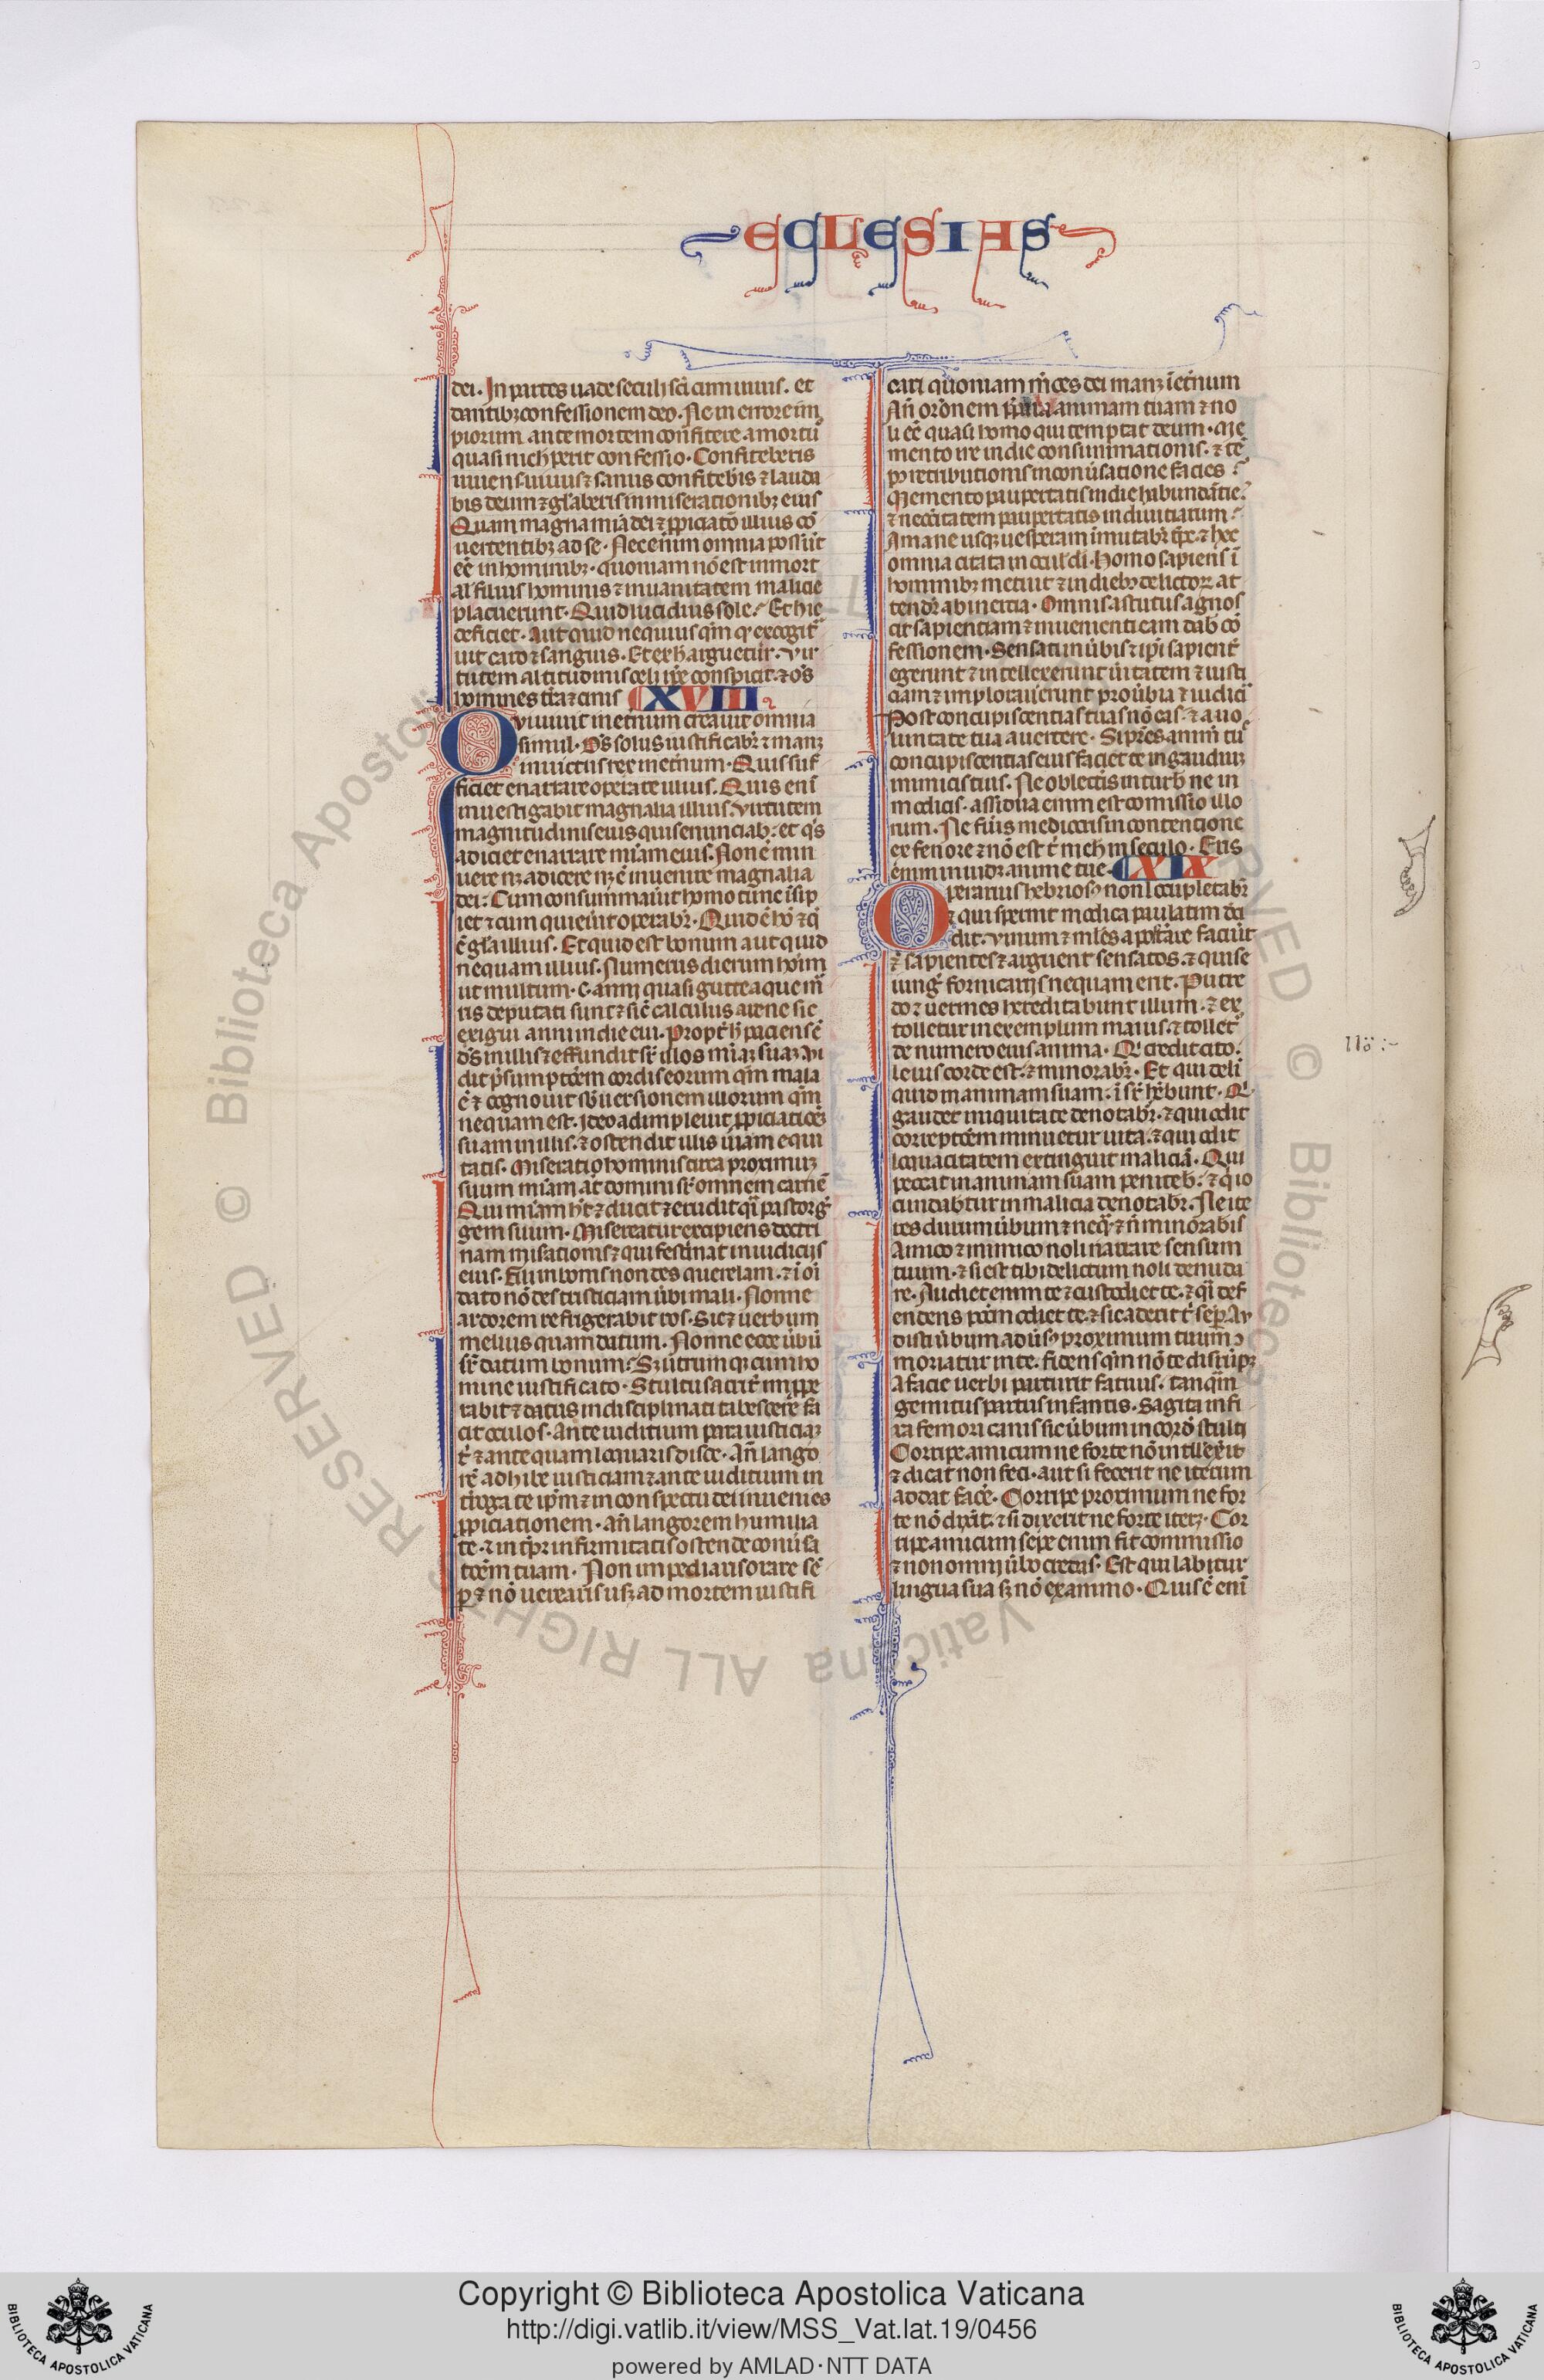 ECCLESIAS
dei. In partes uade seculi sc̄i cum uiuis. et
dantibꝫ confessionem deo. Ne in errore im
piorum. ante mortem confitere a mortuo
quasi nichil perit confessio. Confiteberis
uiuens. uiuus ⁊ sanus confiteb̓is ⁊ lauda
bis deum ⁊ gl̓aberis in miserationibꝫ eius
Quam magna mīa dei ⁊ ꝓpiciatō illius cō
uertentibꝫ ad se. Nec enim omnia possūt
eē in hominibꝫ. quoniam nō est inmort
al̓ filius hominis ⁊ in uanitatem malicie
placuerunt. Quid lucidius sole. Et hic
deficiet. Aut quid nequius q̄m qͥ excogit
uit caro ⁊ sanguis. Et ex h̓ arguetur. Vir
tutem altitudinis celi ip̄e conspicit. ⁊ om̄s
homines tr̄a ⁊ cinis XVIII
Qui uiuit inet̓num creauit omnia
simul. Ds̄ solus iustificabr̄ ⁊ manꝫ
inuictus rex inet̓num. Quis suf
ficiet enarrare opera te illius. Quis enī
inuestigabit magnalia illius. Virtutem
magnitudinis eius quis enunciab. et qͥs
adiciet enarrare mīam eius. Non ē min
uere nꝫ adicere nꝫ ē inuenire magnalia
dei. Cum consummau̓it homo tunc īcip
iet ⁊ cum quieuīt operabr̄. Quid ē hō ⁊ q̄
ē gr̄a illius. Et quid est bonum aut quid
nequam illius. Numerus dierum hoīm
ut multum .c. anni quasi gutte aque ma
ris deputati sunt ⁊ sic̄ calculus arene sic
exigui anni in die eui. Propt̓ h̓ paciens ē
ds̄ in illis ⁊ effundit suꝑ illos mīaꝫ suaꝫ. Vi
dit p̓sumptōem cordis eorum q̄m mala
ē ⁊ cognouit subuersionem illorum q̄m
nequam est. Ideo adimpleuit ꝓpiciatiōeꝫ
suam in illis. ⁊ ostendit illis uiam equi
tatis. Miseratio hominis circa proximuꝫ
suum mīam aūt domini suꝑ omnem carnē
Qui mīam h̓t ⁊ ducit ⁊ erudit qͣi pastor g̓
gem suum. Misereatur excipiens doctri
nam misatiōnis ⁊ qui festinat in iudiciis
eius. Fili in bonis non des querelam. ⁊ ī oī
dato nō des tristiciam u̓bi mali. Nonne
ardorem refrigerabit ros. Sic ⁊ uerbum
melius quam datum. Nonne ecce u̓bū
suꝑ datum bonum. Sꝫ utrumqꝫ cum ho
mine iustificato. Stultus acrit̓ imꝓpe
rabit ⁊ datus indisciplinati tabescere fa
cit oculos. Ante iuditium para iusticiaꝫ
t̓ ⁊ antequam loquaris disce. An̄ lango
rē adhibe iusticiam ⁊ ante iuditium in
t̓roga te ip̄m ⁊ in conspectu dei inuenies
ꝓpiciationem. An̄ langorem humilia
te. ⁊ in tp̄r infirmitatis ostende conu̓sa
tōem tuam. Non impediaris orare sē
ꝑ ⁊ nō uerearis usqꝫ ad mortem iustifi
cari quoniam m̄ces dei manꝫ inet̓num
An̄ or̄onem p̄para animam tuam ⁊ no
li eē quasi homo qui temptat deum. Me
mento ire in die consummationis. ⁊ tē
ꝑ retributionis in conu̓satione faciei.
Memento paupertatis in die habundātie.
⁊ neccītatem paupertatis in diuitiarum.
A mane usqꝫ uesperam īmutabr̄ tp̄s. ⁊ hec
omnia citata in ocul̓ di. Homo sapiens ī
hominibꝫ metuit ⁊ in diebꝫ delictoꝝ at
tendꝫ ab inertia. Omnis astutus agnos
cit sapientiam ⁊ inuenienti eam dab cō
fessionem. Sensati in u̓bis ⁊ ip̄i sapient̓
egerunt ⁊ intellexerunt u̓itatem ⁊ iusti
ciam ⁊ implorauerunt prou̓bia ⁊ iudici
Post concupiscentias tuas nō eas. ⁊ a uo
luntate tua auertere. Si p̄res anim̄ tu
concupiscentias eius faciet te in gaudiuꝫ
inimicis tuis. Ne oblecteris in turb ne in
modicis. assidua enim est comissio illo
rum. Ne fuīs mediocris in contencione
ex fenore ⁊ nō est t̓ nich̓ in seculo. Eris
enim inuidꝫ anime tue. XIX
Operarius hebriosꝫ non locupletabr̄
⁊ qui spernit modica paulatim dei
dit. Vinum ⁊ mul̓es apostatare faciūt
⁊ sapientes ⁊ arguent sensatos. ⁊ qui se
iung̓ fornicariis nequam erit. Putre
do ⁊ uermes hereditabunt illum. ⁊ ex
tolletur in exemplum maius. ⁊ tollet̓
de numero eius anima. Qͥ credit cito.
leuis corde est. ⁊ minorabr̄. Et qui deli
quid in animam suam. ī suꝑ hr̄bunt. Qͥ
gaudet iniquitate denotabr̄. ⁊ qui odit
correptōem minuetur uita. ⁊ qui odit
loquacitatem extinguit maliciā. Qui
peccat in animam suam penitebꝫ. ⁊ qͥ io
cundabꝫtur in malicia denotabr̄. Ne ite
res durum u̓bum ⁊ neqͣꝫ ⁊ n̄ minorabis
Amico ⁊ inimico noli narrare sensum
tuum. ⁊ si est tibi delictum noli denuda
re. Audiet enim te ⁊ custodiet te. ⁊ qͣi def
endens pctm̄ odiet te. ⁊ sic aderit t̓ semꝑ. Au
disti u̓bum adu̓sꝫ proximum tuum
moriatur in te. fidens q̄m nō te disrūpꝫ
A facie uerbi parturit fatuus. tanqͣm
gemitus partus infantis. Sagita infi
xa femori canis sic u̓bum in cord̓ stulti
Corripe amicum ne forte nō intellex̓it
⁊ dicat non feci. aut si fecerit ne iterum
addat face̓. Corripe proximum ne for
te nō dix̓it. ⁊ si dixerit ne forte iteꝝ. Cor
ripe amicum sepe enim fit commissio
⁊ non omni u̓bo credas. Est qui labitur
lingua sua sꝫ nō ex animo. Quis ē enī
Copyright © Biblioteca Apostolica Vaticana
http://digi.vatlib.it/view/MSS_Vat.lat.19/0456
powered by AMLAD·NTT DATA
BIBLIOTECA APOSTOLICA VATICANA
BIBLIOTECA APOSTOLICA VATICANA